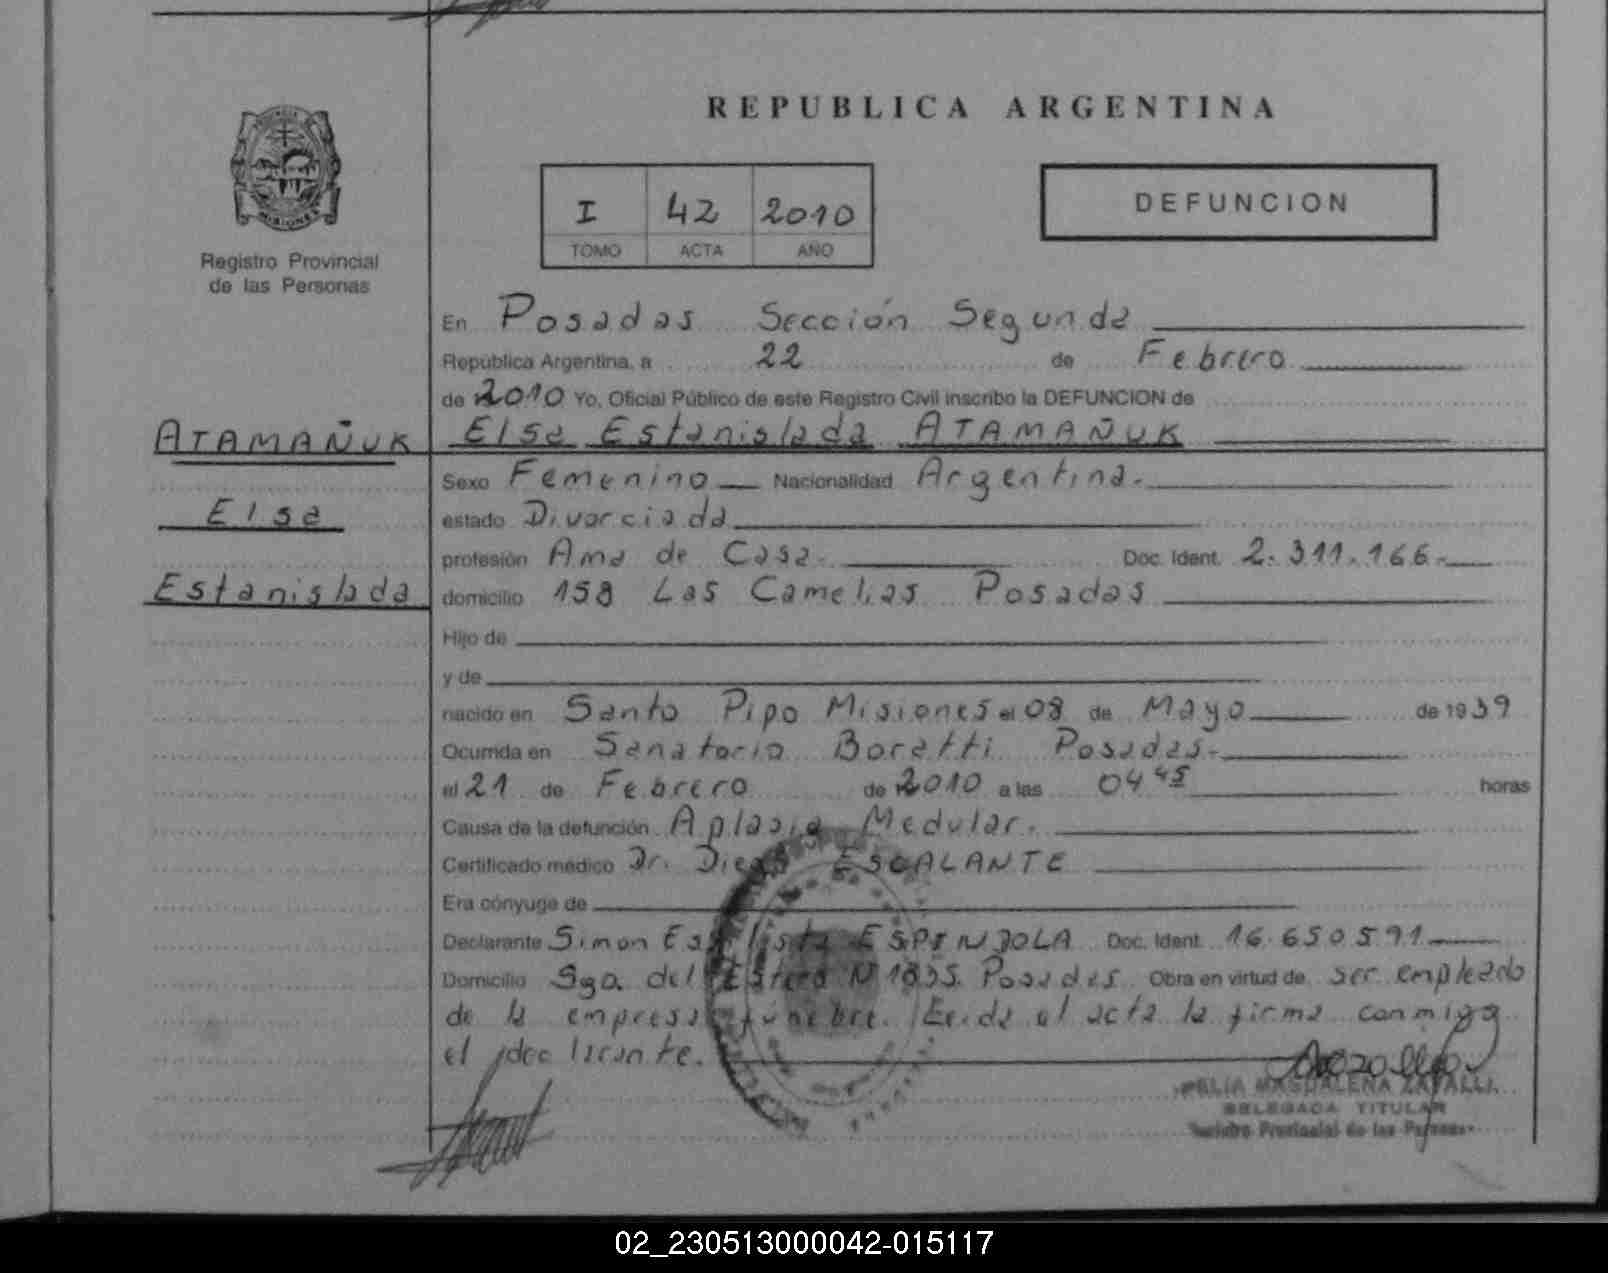 REPUBLICA ARGENTINA
I 42 2010
TOMO ACTA AÑO
DEFUNCION
Registro Provincial
de las Personas
MISIONES
En Posadas Sección Segunda
República Argentina, a 22 de Febrero
de 2010 Yo, Oficial Público de este Registro Civil inscribo la DEFUNCION de
ATAMAÑUK
Elsa
Estanislada
Elsa Estanislada ATAMAÑUK
Sexo Femenino Nacionalidad Argentina.
estado Divorciada
profesión Ama de Casa. Doc. Ident. 2.311.166.
domicilio 158 Las Camelias Posadas
Hijo de
y de
nacido en Santo Pipo Misiones el 08 de Mayo de 1939
Ocurrida en Sanatorio Boratti Posadas.
el 21 de Febrero de 2010 a las 04 45 horas
Causa de la defunción Aplasia Medular.
Certificado médico Dr. Diego ESCALANTE
Era cónyuge de
Declarante Simon ESPINDOLA Doc. Ident. 16.650.591
Domicilio Sgo. del Estero N 1835 Posadas Obra en virtud de ser empleado
de la empresa fúnebre. Leida el acta la firma conmigo
el declarante.
MAGDALENA
DELEGADA TITULAR
Registro Provincial de las Personas
02_230513000042-015117